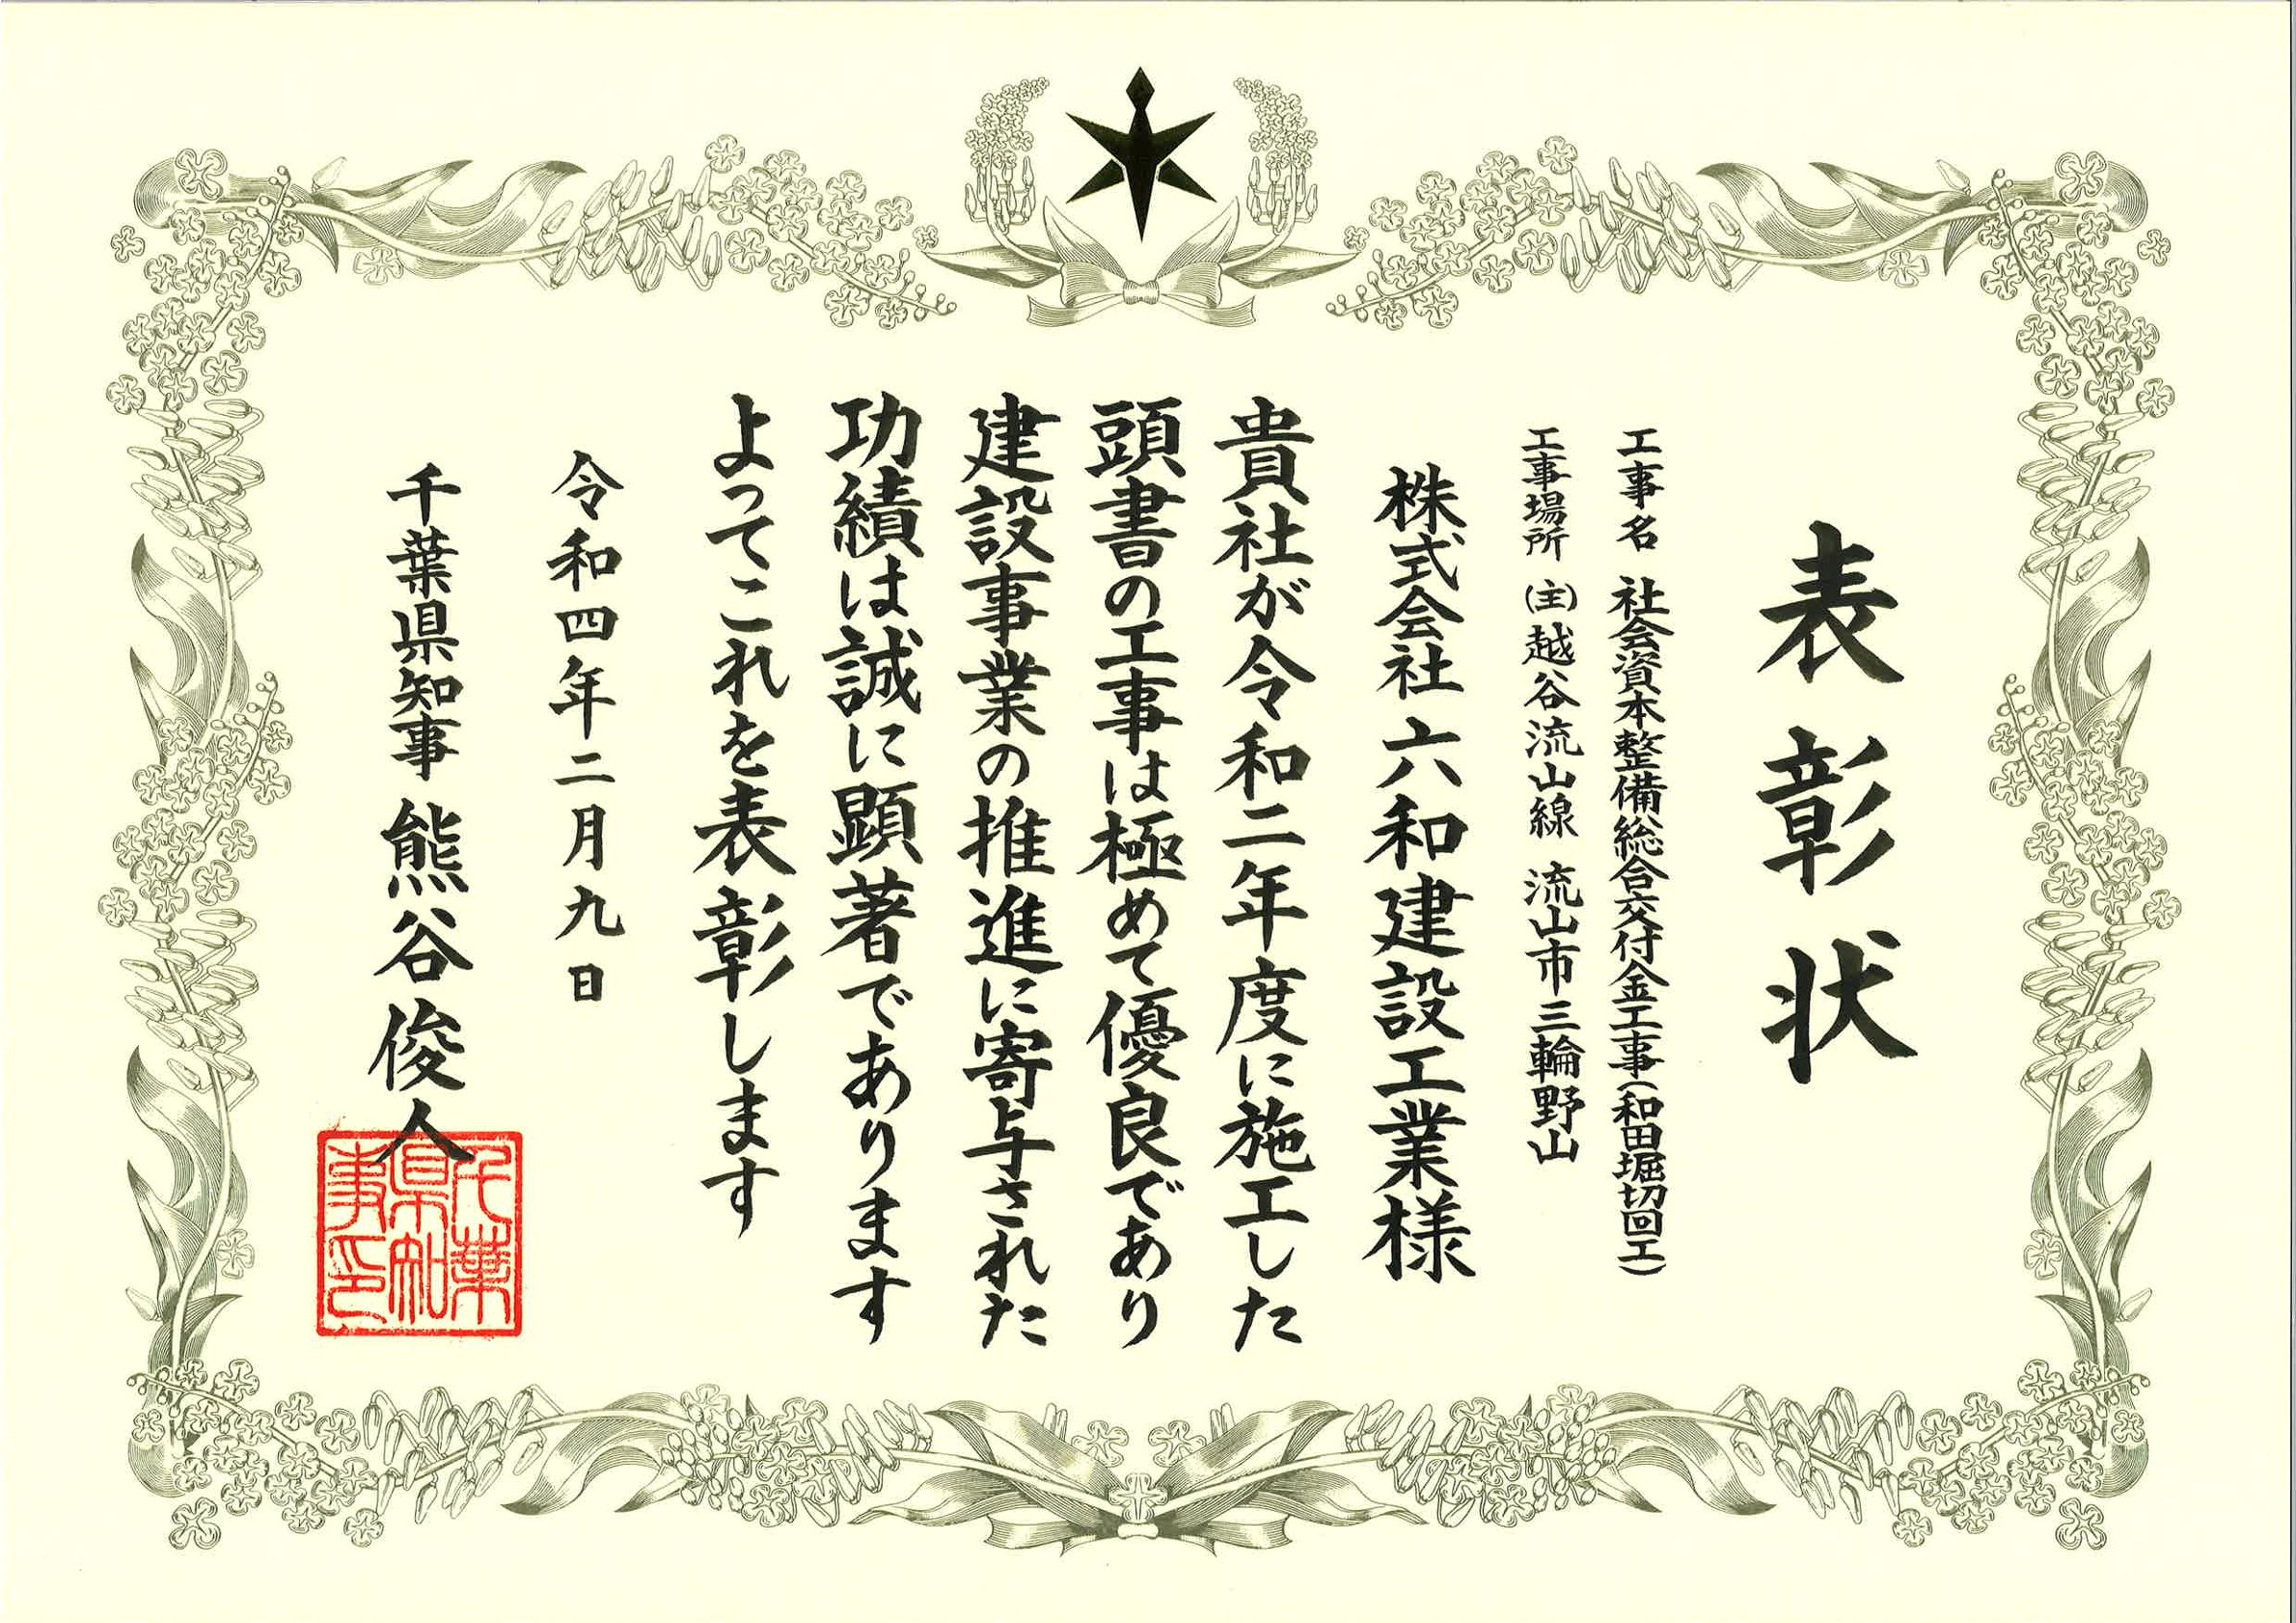 表彰状
工事名 社会資本整備総合交付金工事(和田堀切回工)
工事場所 (主)越谷流山線 流山市三輪野山
株式会社 六和建設工業様
貴社が令和二年度に施工した
頭書の工事は極めて優良であり
建設事業の推進に寄与された
功績は誠に顕著であります
よってこれを表彰します
令和四年二月九日
千葉県知事 熊谷俊人
千葉
県知
事印